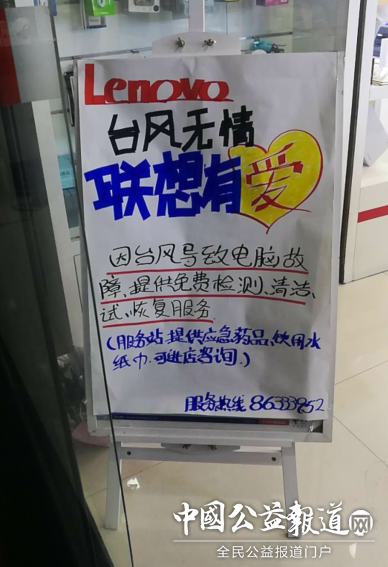 Lenovo
台风无情
联想有爱
因台风导致电脑故
障、提供免费检测、清洁、
试、恢复服务
(服务站 提供应急药品、饮用水
纸巾.可进店咨询.)
服务热线 8633952
中國公益報道网
全民公益报道门户